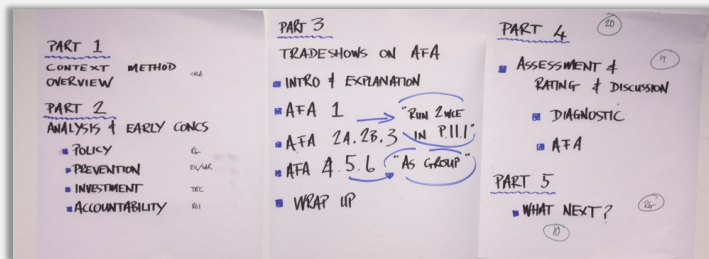 PART 1
CONTEXT METHOD
OVERVIEW
PART 2
ANALYSIS & EARLY CONCS
POLICY
PREVENTION
INVESTMENT
ACCOUNTABILITY
PART 3
TRADESHOWS ON AFA
INTRO & EXPLANATION
AFA 1 "RUN
AFA 2A.2B.3 IN
AFA 4.5.6 "AS GROUP"
WRAP UP
PART 4
20
ASSESSMENT &
RATING & DISCUSSION
DIAGNOSTIC
AFA
PART 5
WHAT NEXT?
10